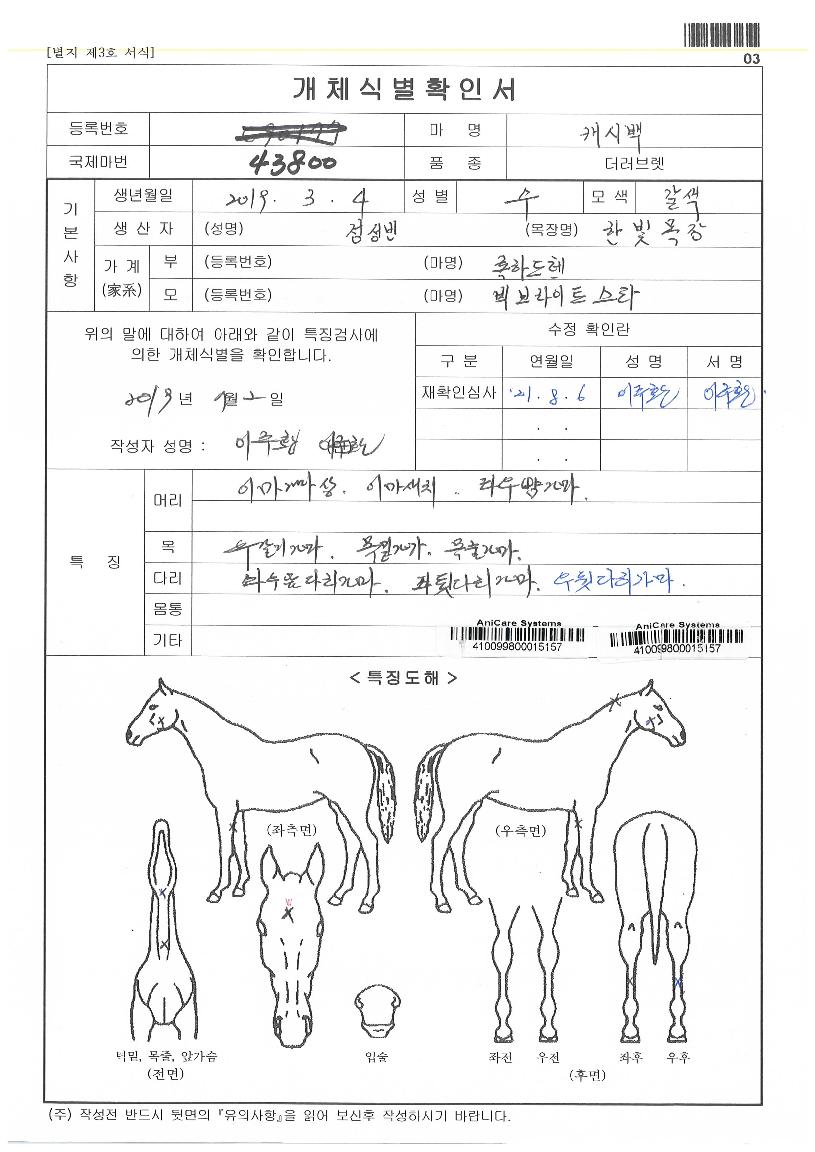 [별지 제3호 서식]
03
개체식별확인서
등록번호
마 명 캐시백
국제마번 43800 품 종 더러브렛
기본사항
생년월일 2019. 3. 4 성 별 수 모 색 갈색
생 산 자 (성명) 정성빈 (목장명) 한빛목장
가 계 (家系) 부 (등록번호) (마명) 록하드텐
모 (등록번호) (마명) 빅브라이트스타
위의 말에 대하여 아래와 같이 특징검사에
의한 개체식별을 확인합니다.
2019년 9월 2일
작성자 성명 :
수정 확인란
구 분 연월일 성 명 서 명
재확인심사 '21. 8. 6
. .
. .
특 징
머리 이마 . 이마새치 . 좌우뺨가마.
목 우갈기가마. 목밑가마. 목줄가마.
다리 좌우앞다리가마. 좌뒷다리가마. 우뒷다리가마.
몸통
기타
AniCare Systems
410099800015157
AniCare Systems
410099800015157
< 특징도해 >
(좌측면)
(우측면)
턱밑, 목줄, 앞가슴
(전면)
입술
좌전 우전
좌후 우후
(후면)
(주) 작성전 반드시 뒷면의 『유의사항』을 읽어 보신후 작성하시기 바랍니다.